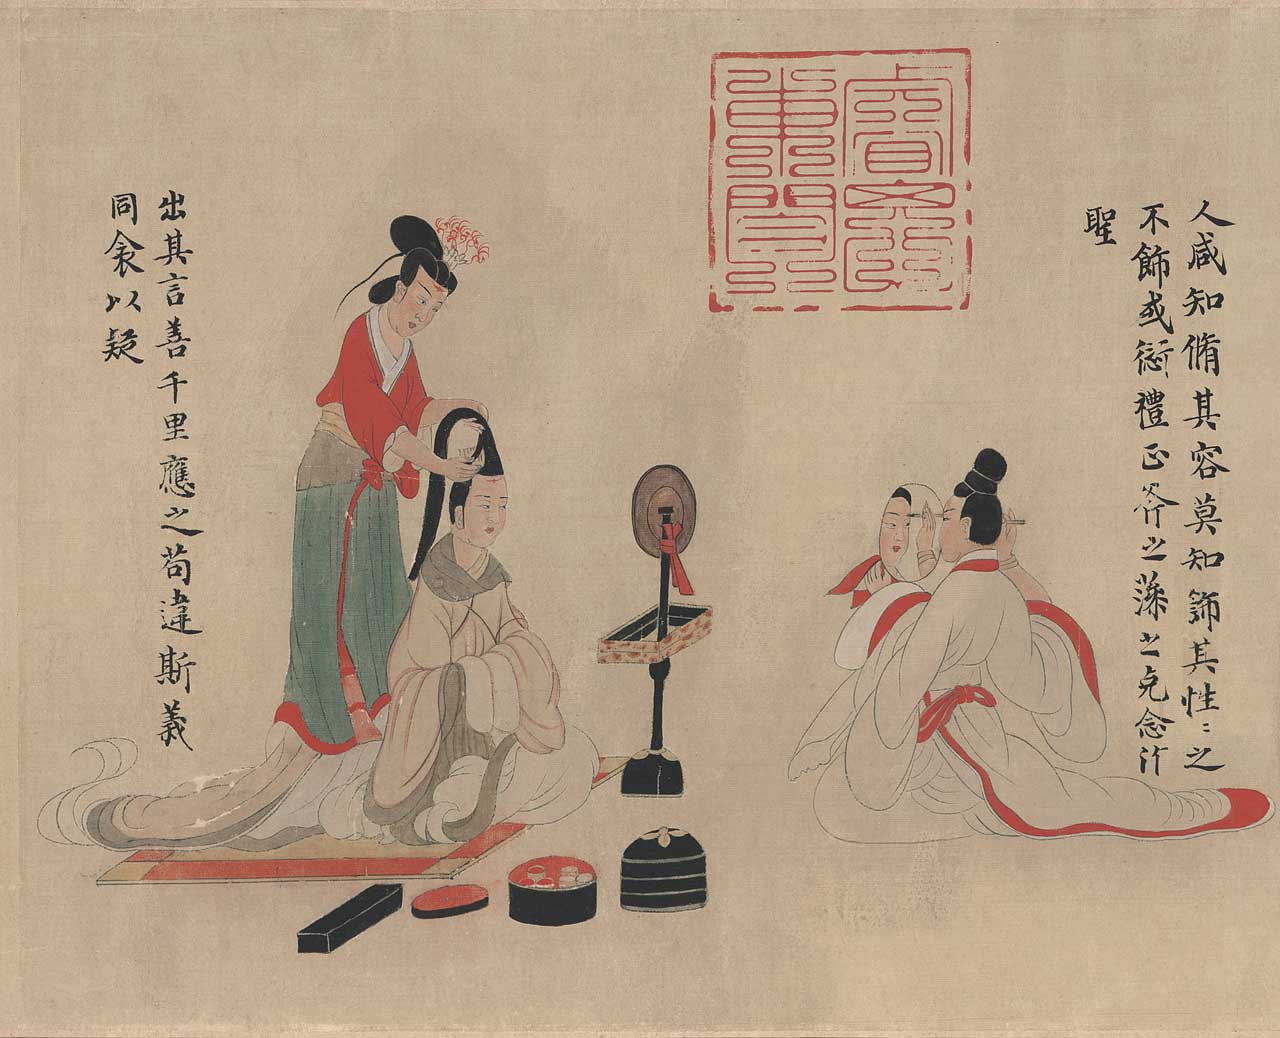 人咸知脩其容莫知飾其性〻之
不飾或愆禮正斧之藻之克念作
聖
睿思
東閣
出其言善千里應之苟違斯義
同衾以疑